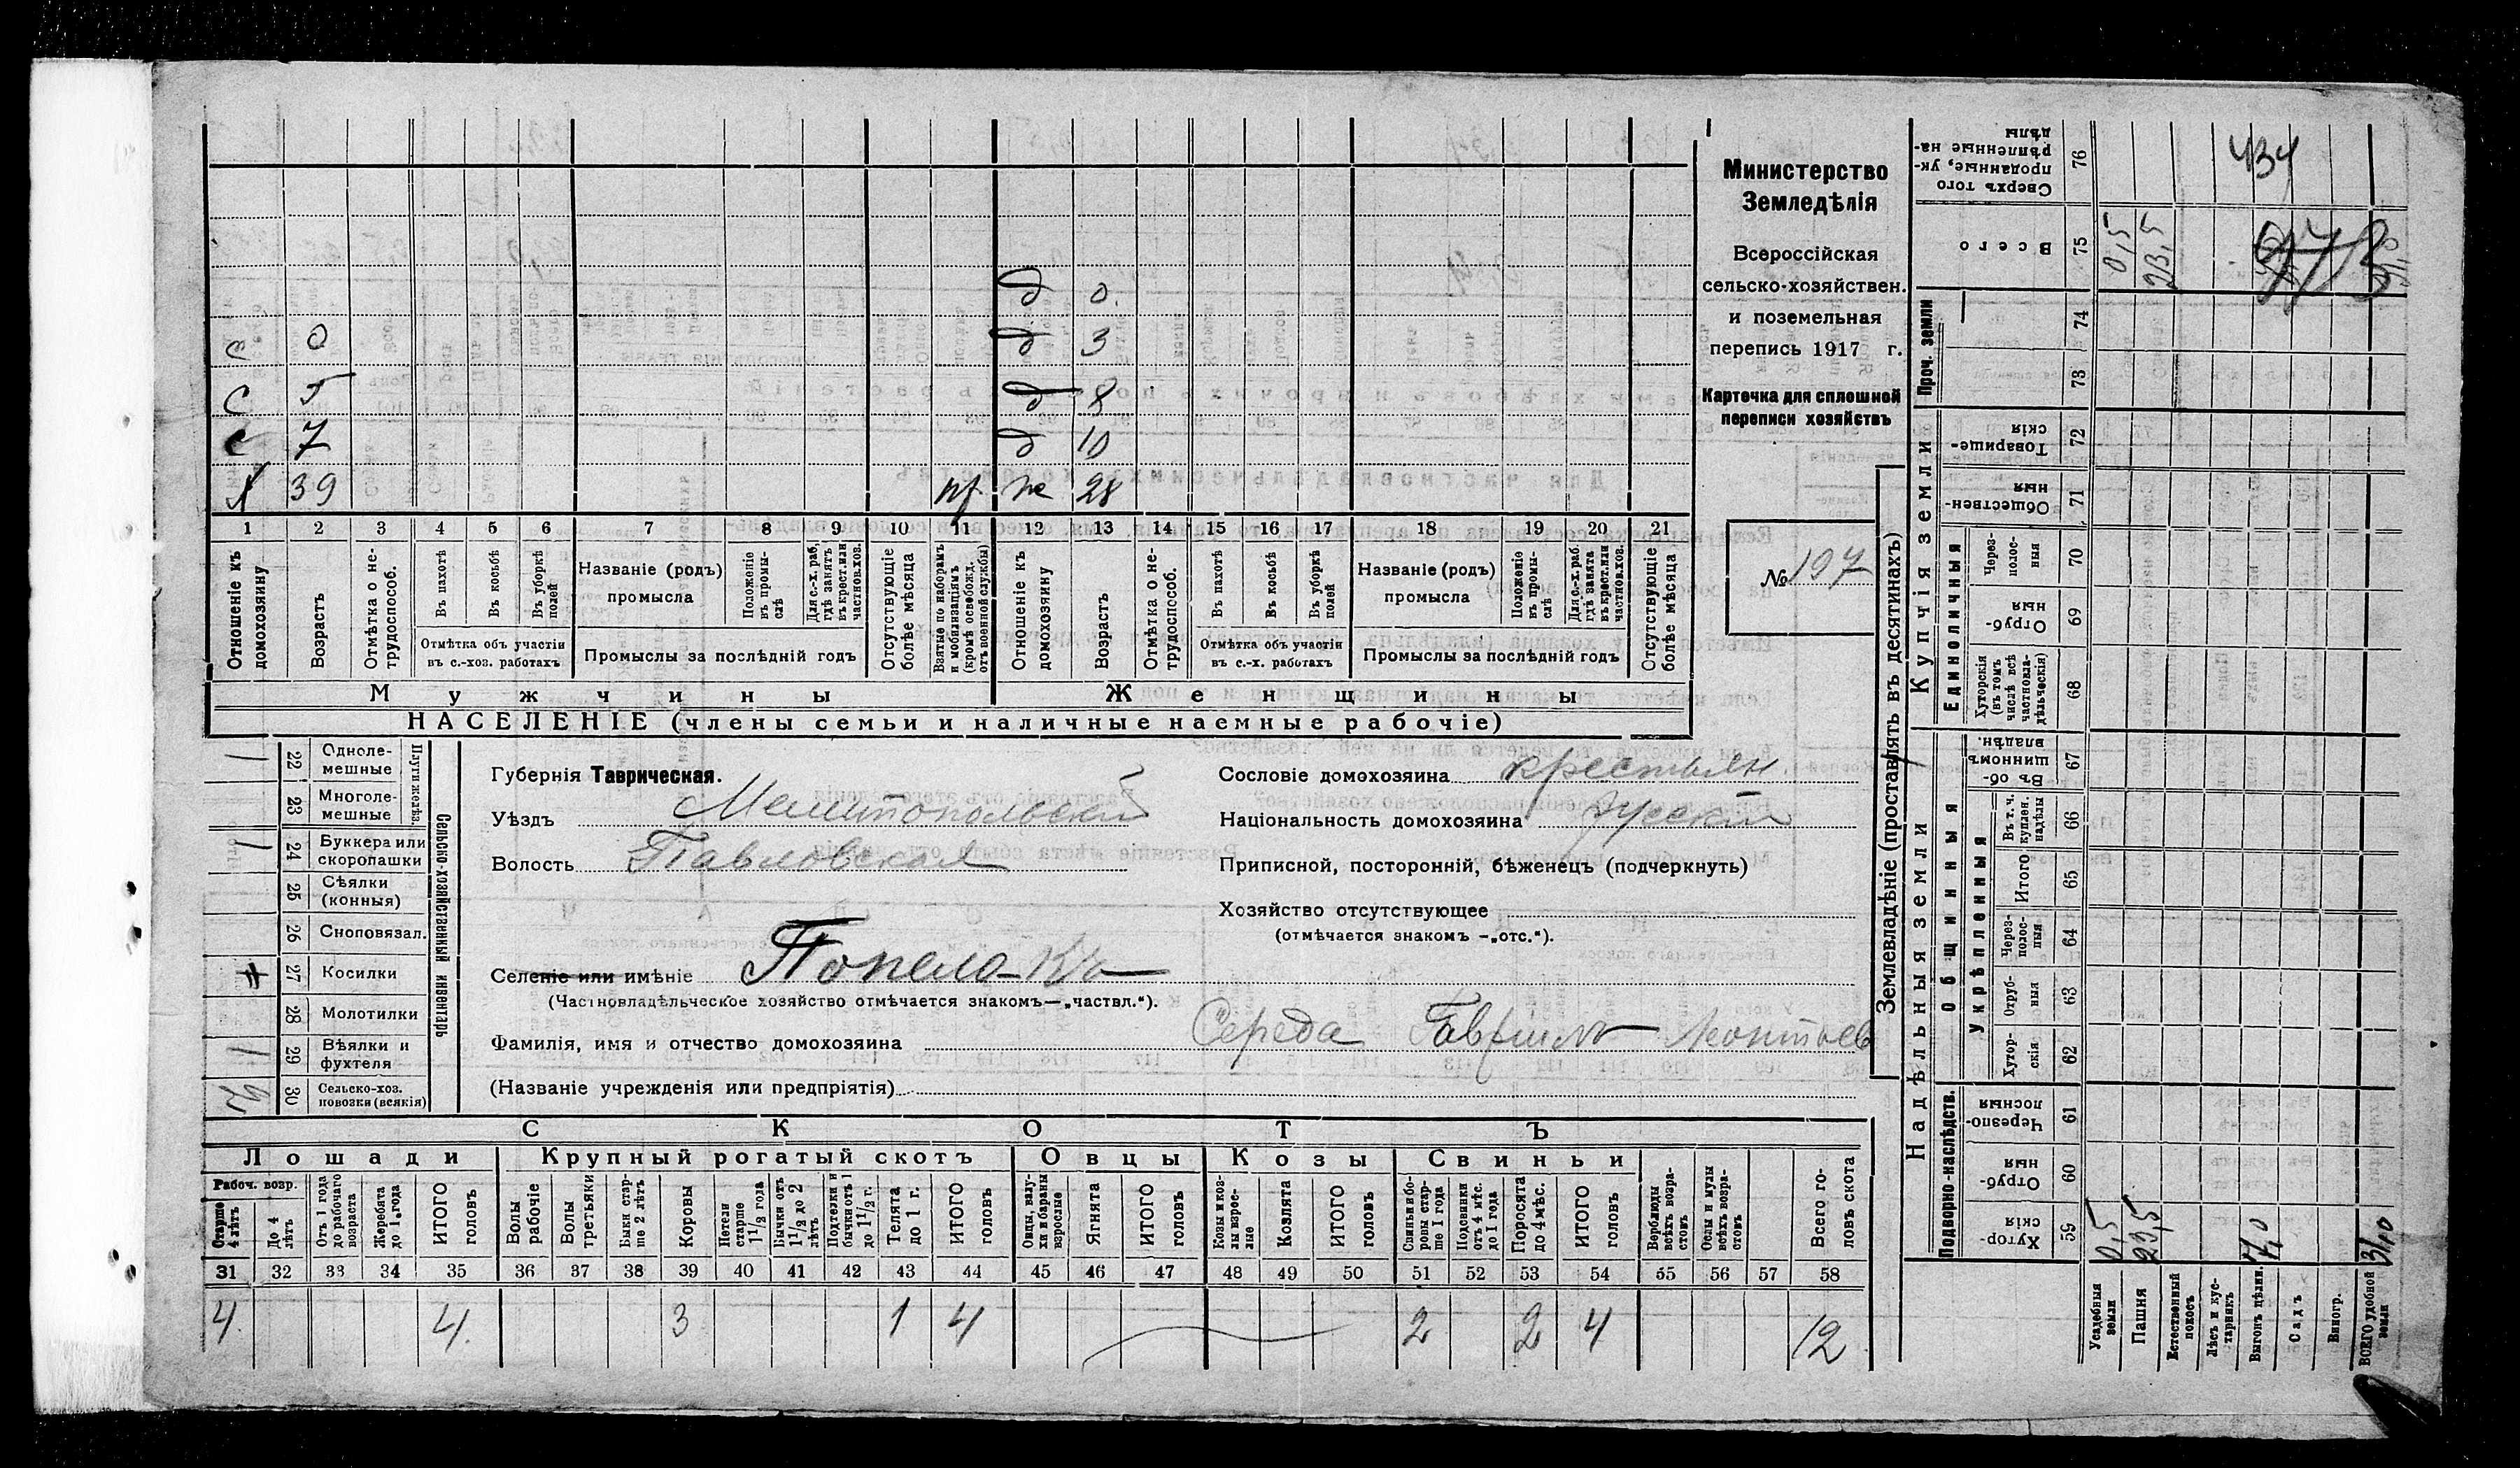 Министерство
Земледѣлія
Всероссійская
сельско-хозяйствен.
и поземельная
перепись 1917 г.
Карточка для сплошной
переписи хозяйствъ
№ 197
д 0.
с 0 д 3
с 5 д 8
с 7 д 10
Х 39 ж 28
1 2 3 4 5 6 7 8 9 10 11 12 13 14 15 16 17 18 19 20 21
Отношеніе къ домохозяину
Возрастъ
Отмѣтка о не-трудоспособ.
Въ пахотѣ
Въ косьбѣ
Въ уборкѣ полей
Отмѣтка объ участіи въ с.-хоз. работахъ
Названіе (родъ) промысла
Положеніе въ промы-слѣ
Для с.-х. раб. гдѣ занятъ въ крест. или частнов. хоз.
Промыслы за послѣдній годъ
Отсутствующіе болѣе мѣсяца
Взятые по наборамъ и мобилизаціямъ (кромѣ освобожд. отъ военной службы)
Отношеніе къ домохозяину
Возрастъ
Отмѣтка о не-трудоспособ.
Въ пахотѣ
Въ косьбѣ
Въ уборкѣ полей
Отмѣтка объ участіи въ с.-х. работахъ
Названіе (родъ) промысла
Положеніе въ промы-слѣ
Для с.-х. раб. гдѣ занята въ крест. или частнов. хоз.
Промыслы за послѣдній годъ
Отсутствующіе болѣе мѣсяца
Мужчины Женщины
НАСЕЛЕНІЕ (члены семьи и наличные наемные рабочіе)
Сельско-хозяйственный инвентарь
Плуги желѣз.
22 Одноле-мешные 1
23 Многоле-мешные
24 Буккера или скоропашки 1
25 Сѣялки (конныя)
26 Сноповязал.
27 Косилки
28 Молотилки
29 Вѣялки и фухтеля 1
30 Сельско-хоз. повозки (всякія)
Губернія Таврическая.
Уѣздъ Мелитопольскій
Волость Павловская
Селеніе или имѣніе
(Частновладѣльческое хозяйство отмѣчается знакомъ—„частвл.“).
Сословіе домохозяина крестьян
Національность домохозяина русскій
Приписной, посторонній, бѣженецъ (подчеркнуть)
Хозяйство отсутствующее
(отмѣчается знакомъ –„отс.“).
Фамилія, имя и отчество домохозяина Середа Гаврило Леонтьев
(Названіе учрежденія или предпріятія)
СКОТЪ
Лошади Крупный рогатый скотъ Овцы Козы Свиньи
Рабоч. возр.
Старше 4 лѣтъ
До 4 лѣтъ
Отъ 1 года до рабочаго возраста
Жеребята до 1 года
ИТОГО головъ
Волы рабочіе
Волы третьяки
Быки стар-ше 2 лѣтъ
Коровы
Нетели старше 1 1/2 года
Бычки отъ 1 1/2 до 2 лѣтъ
Подтелки и бычки отъ 1 до 1 1/2 г.
Телята до 1 г.
ИТОГО головъ
Овцы, валу-хи и бараны взрослые
Ягнята
ИТОГО головъ
Козы и коз-лы взрос-лые
Козлята
ИТОГО головъ
Свиньи и бо-ровы стар-ше 1 года
Подсвинки отъ 4 мѣс. до 1 года
Поросята до 4 мѣс.
ИТОГО головъ
Верблюды всѣхъ возра-стовъ
Ослы и мулы всѣхъ возра-стовъ
Всего го-ловъ скота
31 32 33 34 35 36 37 38 39 40 41 42 43 44 45 46 47 48 49 50 51 52 53 54 55 56 57 58
4 4 3 1 4 2 2 4 12
Землевладѣніе (проставлять въ десятинахъ)
Надѣльныя земли
Купчія земли
Проч. земли
Подворно-наслѣдств.
Общинныя
Укрѣпленныя
Единоличныя
Сверхъ того проданные, ук-рѣпленные на-дѣлы 76
Всего 75
74
73
Товарище-скія 72
Обществен-ныя 71
Через-полос-ныя 70
Отруб-ныя 69
Хуторскія (въ томъ числѣ всѣ частновла-дѣльческія) 68
Въ об-щинномъ владѣн. 67
Въ т. ч. куплен. надѣлы 66
Итого 65
Через-полос-ныя 64
Отруб-ныя 63
Хутор-скія 62
Черезпо-лосныя 61
Отруб-ныя 60
Хутор-скія 59
434
0,5 23,5
0,5 23,5 7,0 31,0
Усадебныя земли
Пашня
Естественный покосъ
Лѣсъ и кус-тарникъ
Выгонъ цѣлин.
Садъ
Виногр.
ВСЕГО удобной земли